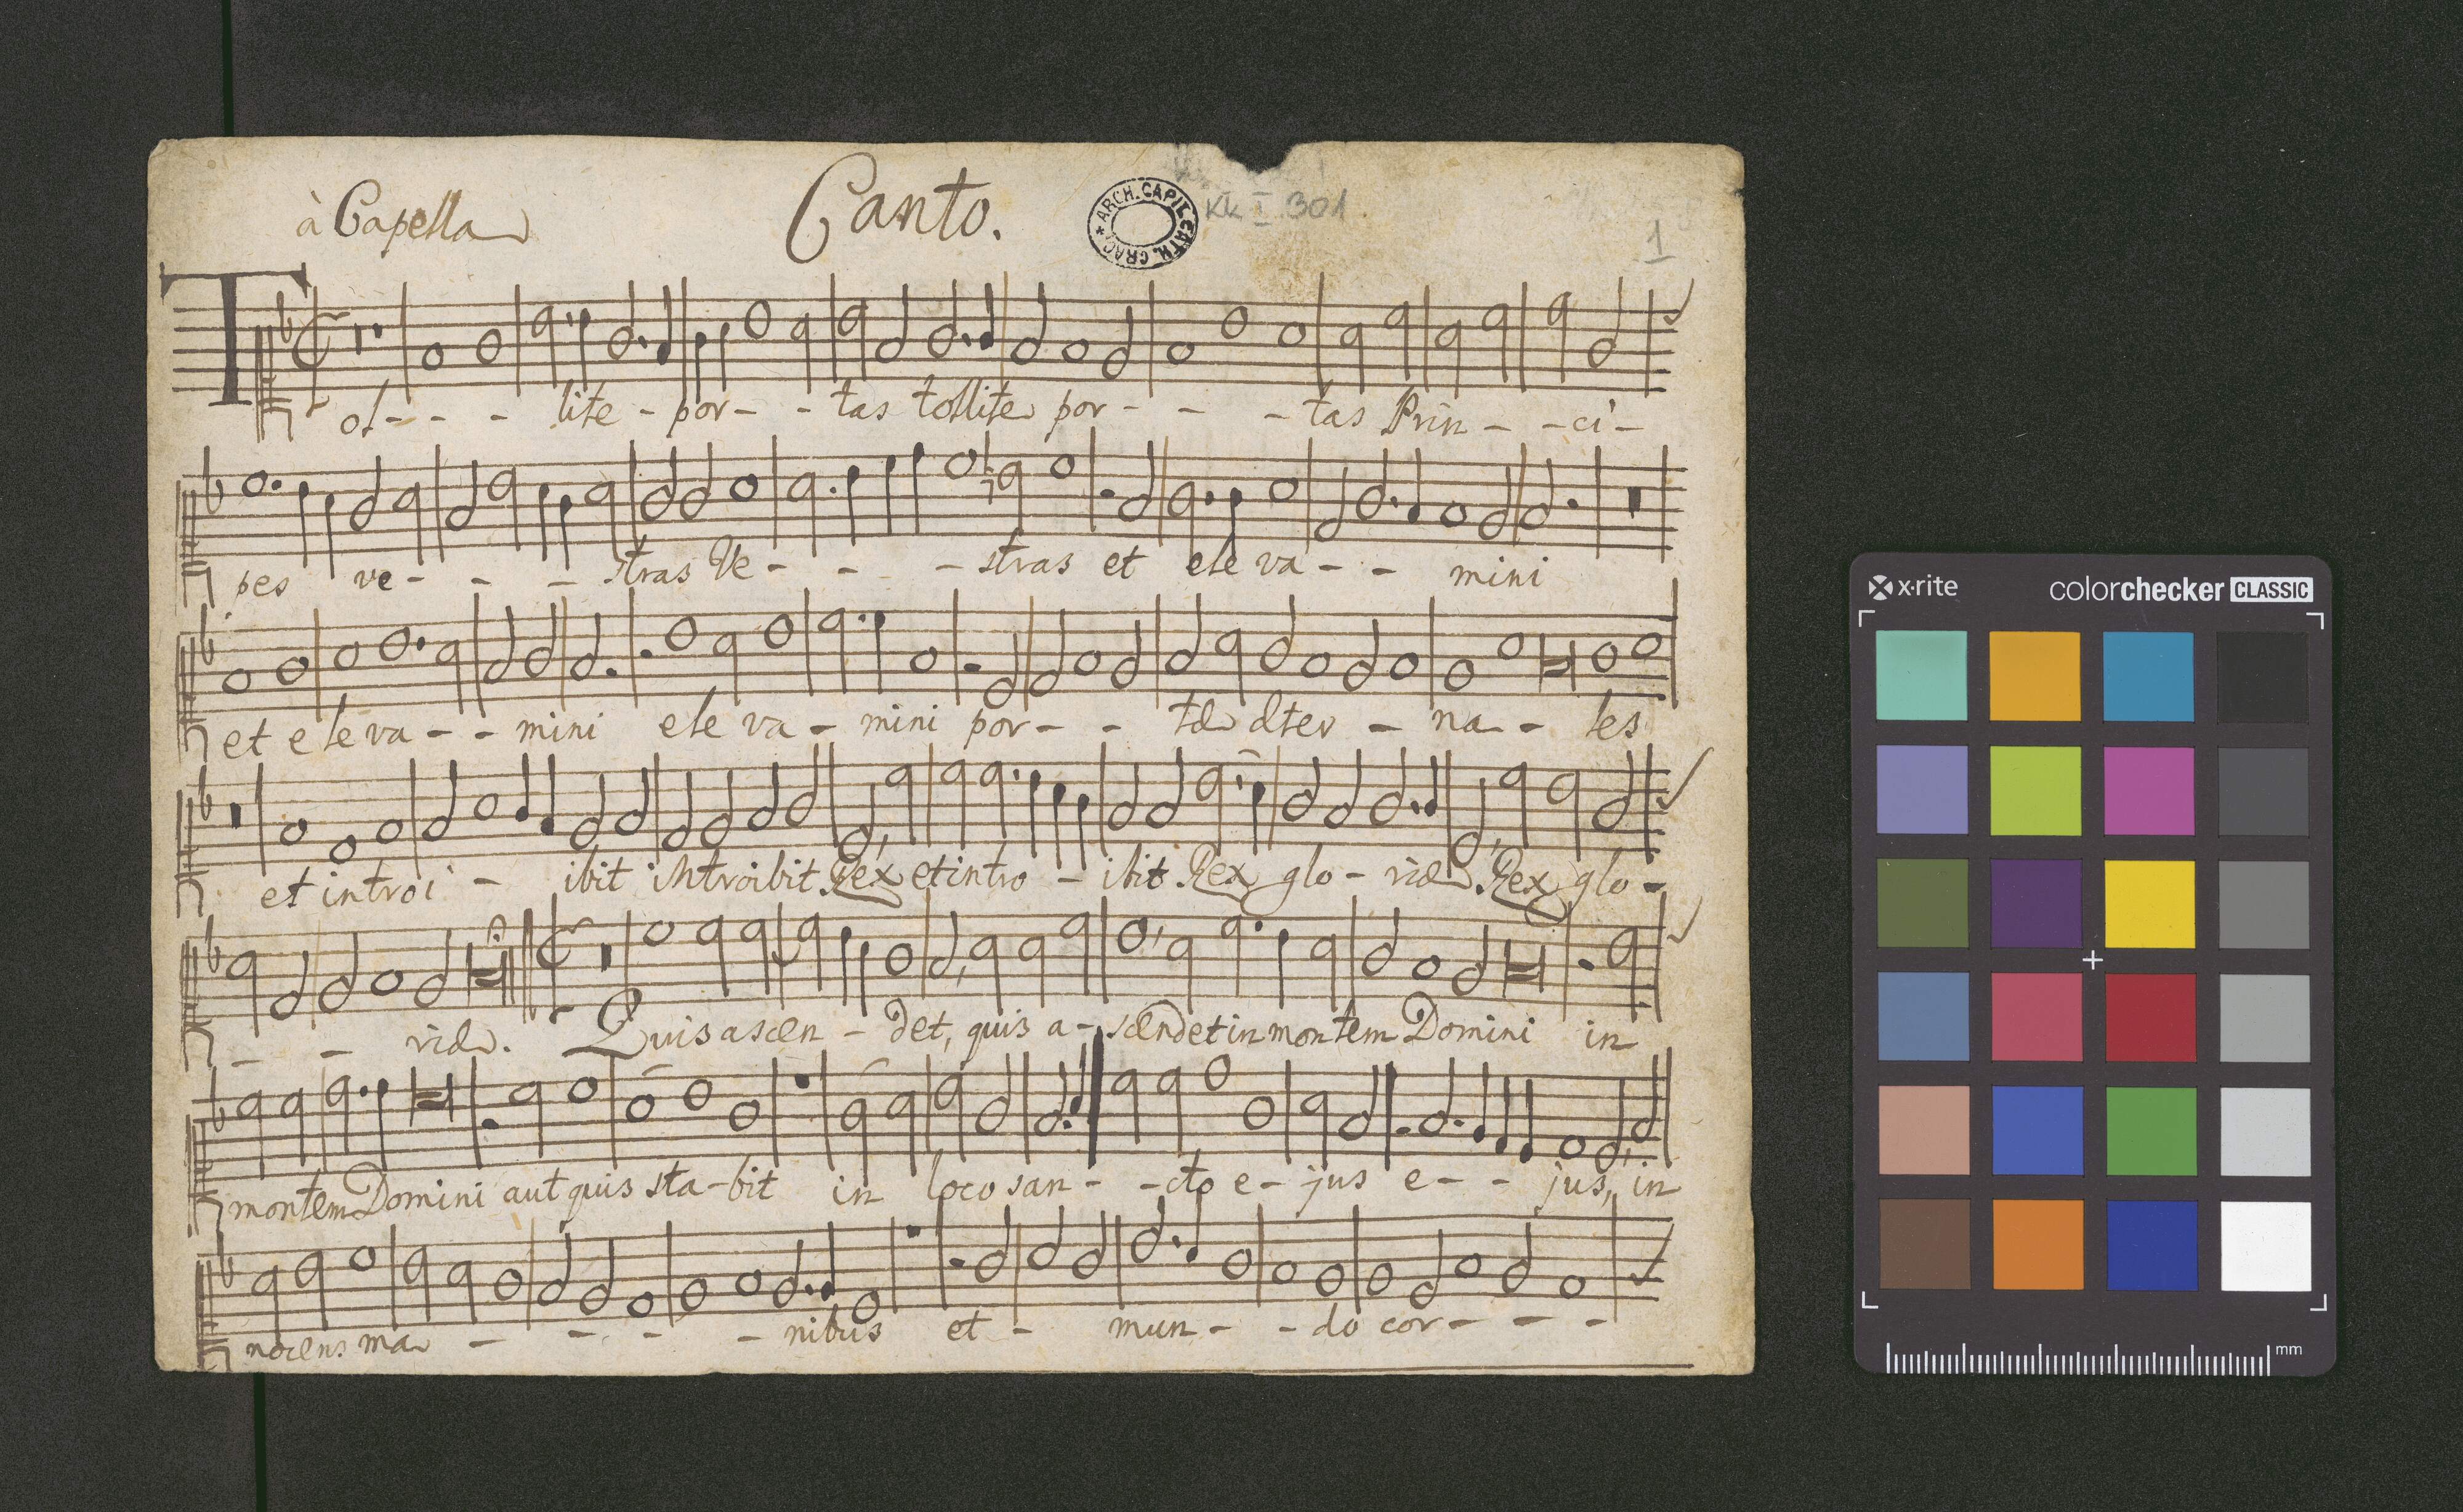 à Capella
Canto.
ARCH. CAPIT. CATH. CRAC.
Kk I 301
1
Tol- - - lite - por- - tas tollite por- - - tas Prin - - ci -
pes ve - - - stras Ve - - - stras et ele va - - mini
et e le va - - mini ele va - mini por - - tæ æter - na - - les
et introi - ibit introibit Rex et intro - ibit Rex glo - riæ Rex glo -
- - riæ. Quis ascen - det, quis a - scendet in montem Domini in
montem Domini aut quis sta - bit in loco san - - cto e - jus e - - - jus, in
nocens ma - - - - nibus et - mun - - do cor - - -
x·rite
colorchecker CLASSIC
mm